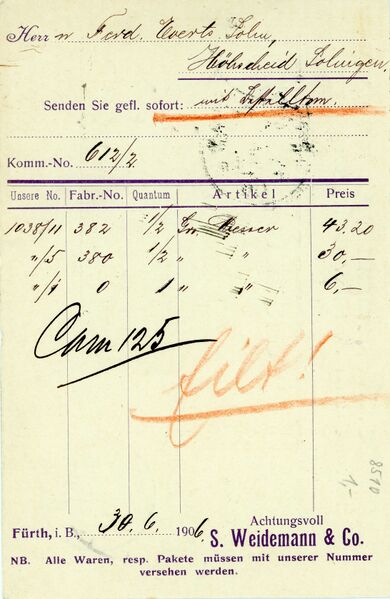 Herrn Ferd. Everts Sohn,
Höhscheid Solingen,
Senden Sie gefl. sofort: wie bestellt
Komm.-No. 612/2
Unsere No. Fabr.-No. Quantum Artikel Preis
1038/11 382 1/2 Gr. Messer 43.20
"/5 380 1/2 " " 30,-
"/7 0 1 " " 6,-
Cam 125
eilt!
8510
1,-
Fürth, i. B., 30. 6. 1906. Achtungsvoll
S. Weidemann & Co.
NB. Alle Waren, resp. Pakete müssen mit unserer Nummer
versehen werden.